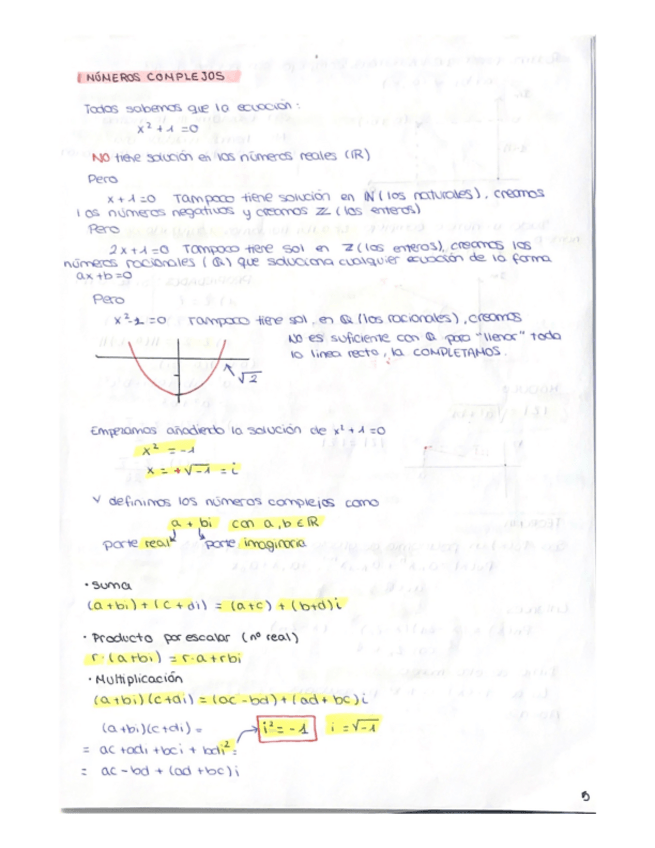 NÚMEROS COMPLEJOS
Todos sabemos que la ecuación:
x² + 1 = 0
NO tiene solución en los números reales (ℝ)
Pero
x + 1 = 0 Tampoco tiene solución en ℕ (los naturales), creamos
los números negativos y creamos ℤ (los enteros)
Pero
2x + 1 = 0 Tampoco tiene sol en ℤ (los enteros), creamos los
números racionales (ℚ) que soluciona cualquier ecuación de la forma
ax + b = 0
Pero
x² - 2 = 0 Tampoco tiene sol. en ℚ (los racionales), creamos
No es suficiente con ℚ para "llenar" toda
la línea recta, la COMPLETAMOS.
√2
Empezamos añadiendo la solución de x² + 1 = 0
x² = -1
x = +√-1 = i
Y definimos los números complejos como
a + bi con a, b ∈ ℝ
parte real parte imaginaria
• Suma
(a + bi) + (c + di) = (a + c) + (b + d)i
• Producto por escalar (nº real)
r · (a + bi) = r · a + rbi
• Multiplicación
(a + bi)(c + di) = (ac - bd) + (ad + bc)i
(a + bi)(c + di) = i² = -1 i = √-1
= ac + adi + bci + bdi² =
= ac - bd + (ad + bc)i
5